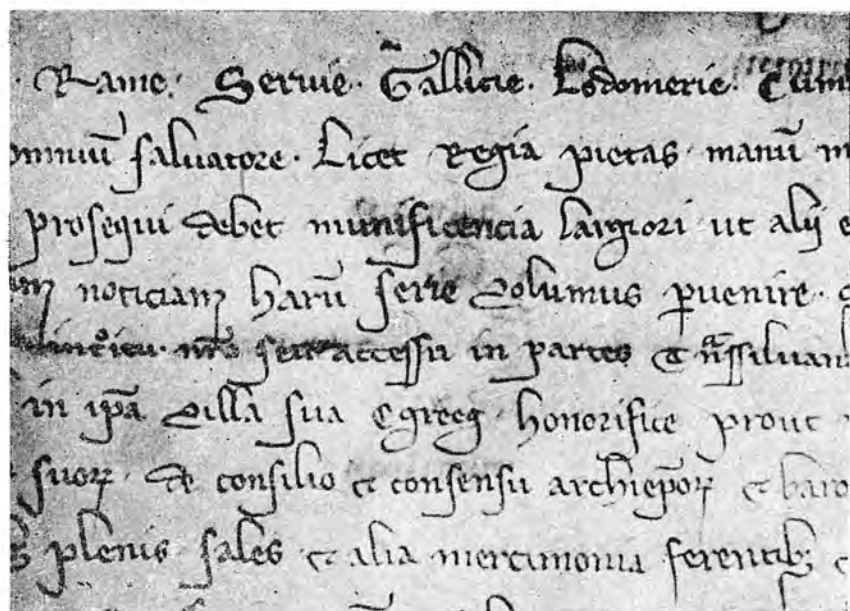 Rame · Servie · Gallicie · Lodomerie · Cum
omniū salvatore · Licet Regia pietas manū
prosequi debet munificencia largiori ut alij
noticiam harū serie volumus pervenire ·
introitu · nr̄o seu accessu in partes Transsilvan
in ipā villa sua Egreeg honorifice prout
suorꝝ · de consilio et consensu archiep̄orꝝ et baro
plenis sales et alia mercimonia ferentibꝫ